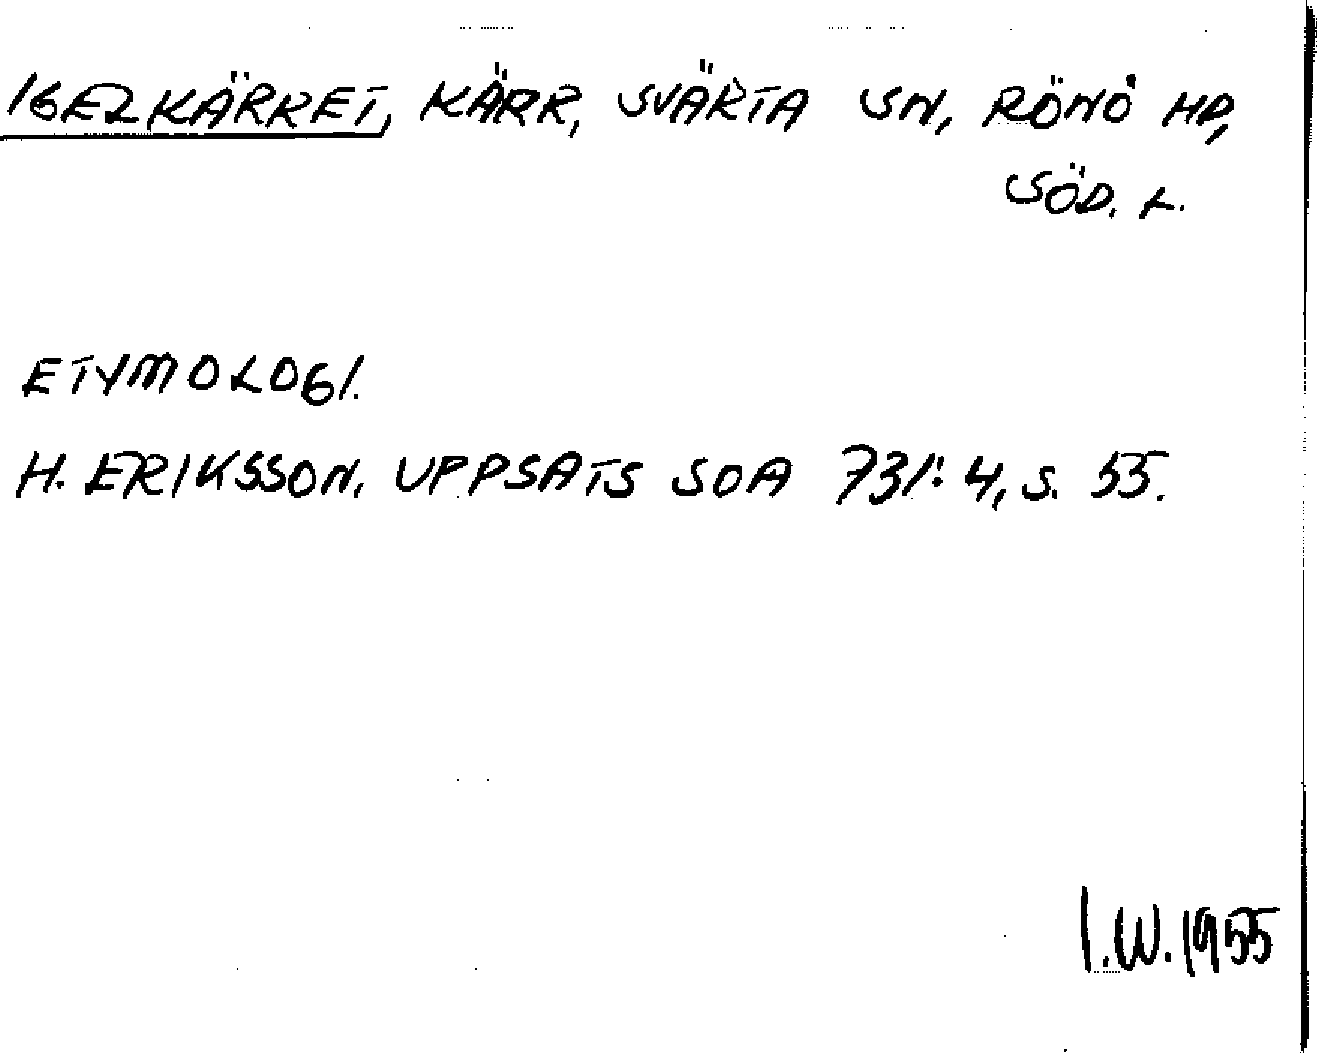 IGELKÄRRET, KÄRR, SVÄRTA SN, RÖNÖ HD,
SÖD. L.
ETYMOLOGI.
H. ERIKSSON. UPPSATS SOA 731:4, S. 55.
I.W. 1955